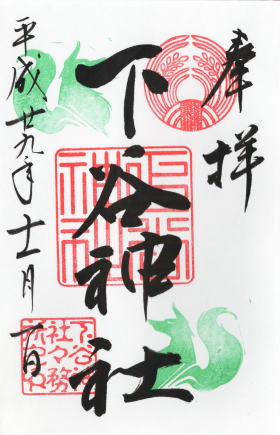 奉拝
下谷神社
平成廿九年十一月一日
下谷神社
下谷神
社々務
所之印